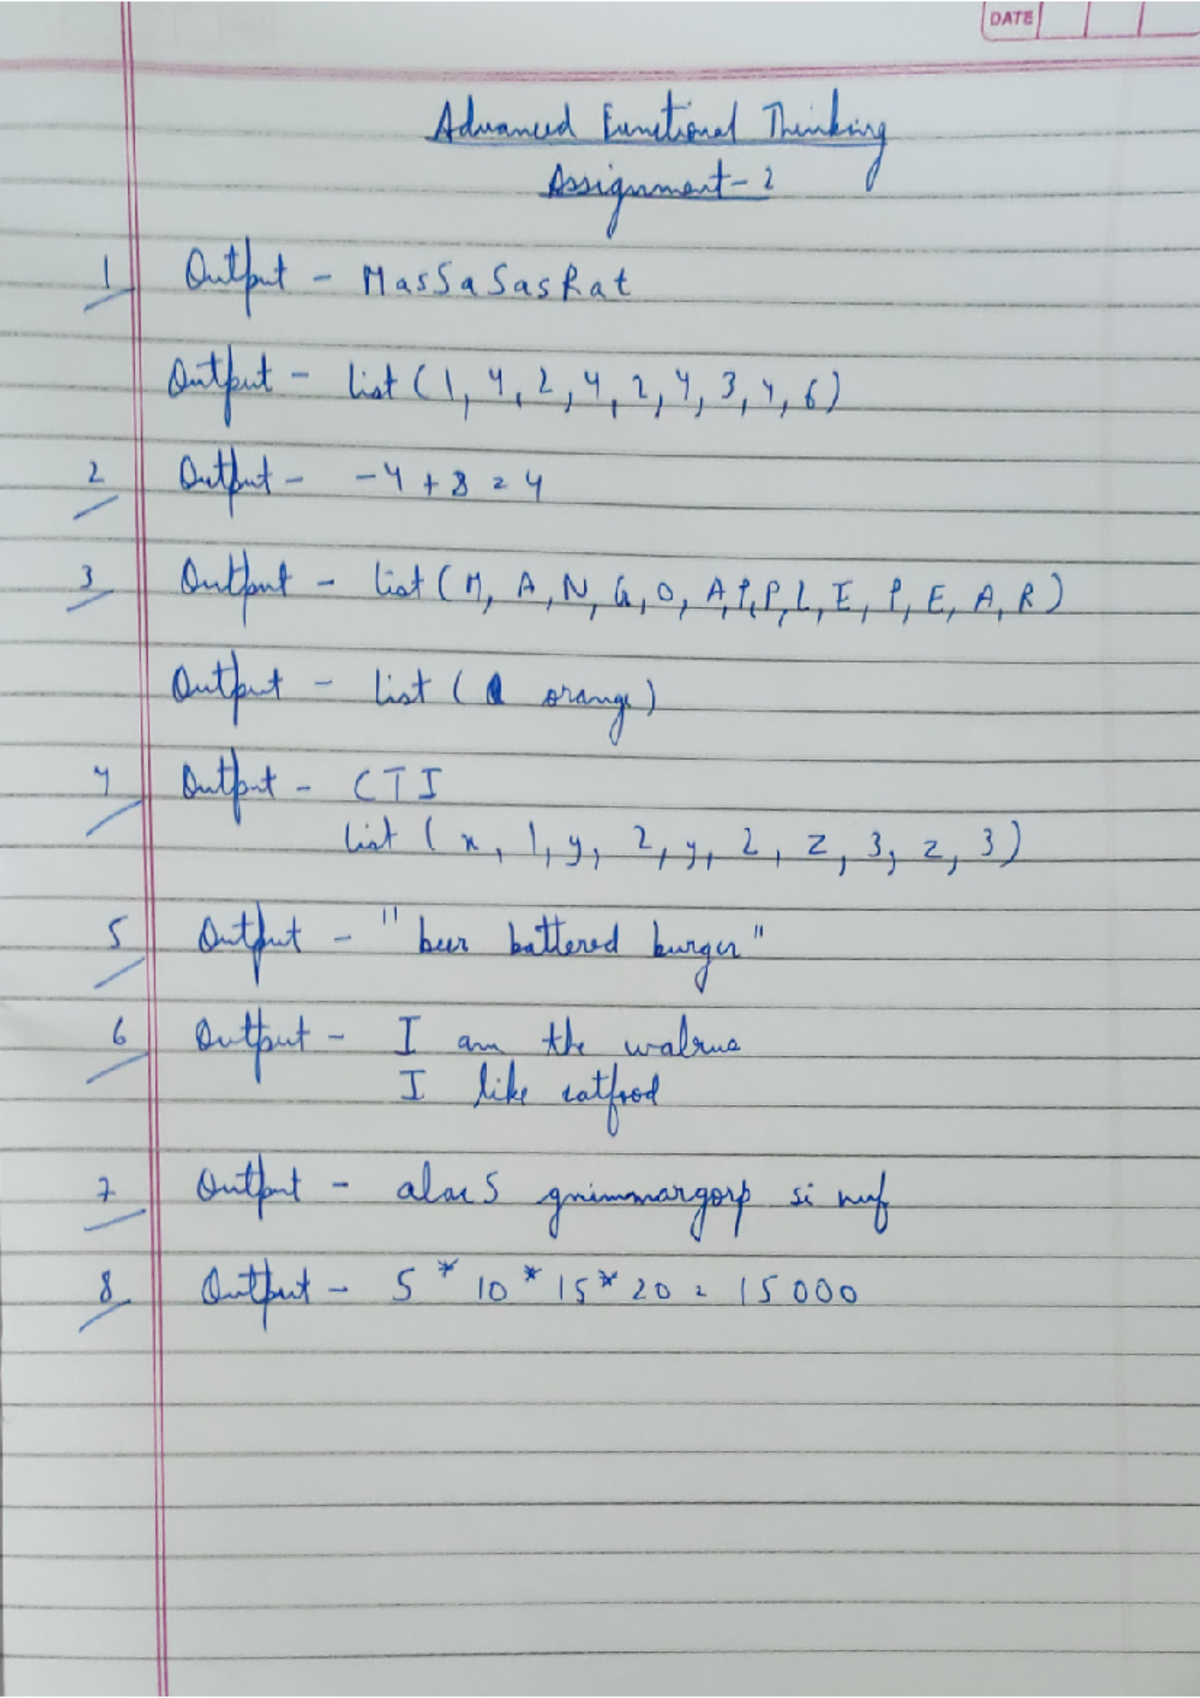 DATE
Advanced Functional Thinking
Assignment - 2
1 Output - MasSaSasRat
Output - list (1, 4, 2, 4, 2, 4, 3, 4, 6)
2 Output - -4 + 8 = 4
3 Output - list (M, A, N, G, O, A, P, P, L, E, P, E, A, R)
Output - list ( orange)
4 Output - CTI
list ( x, 1, y, 2, y, 2, z, 3, z, 3)
5 Output - "beer battered burger"
6 Output - I am the walrus
I like catfood
7 Output - alacS gnimmargorp si nuf
8 Output - 5 * 10 * 15 * 20 = 15000